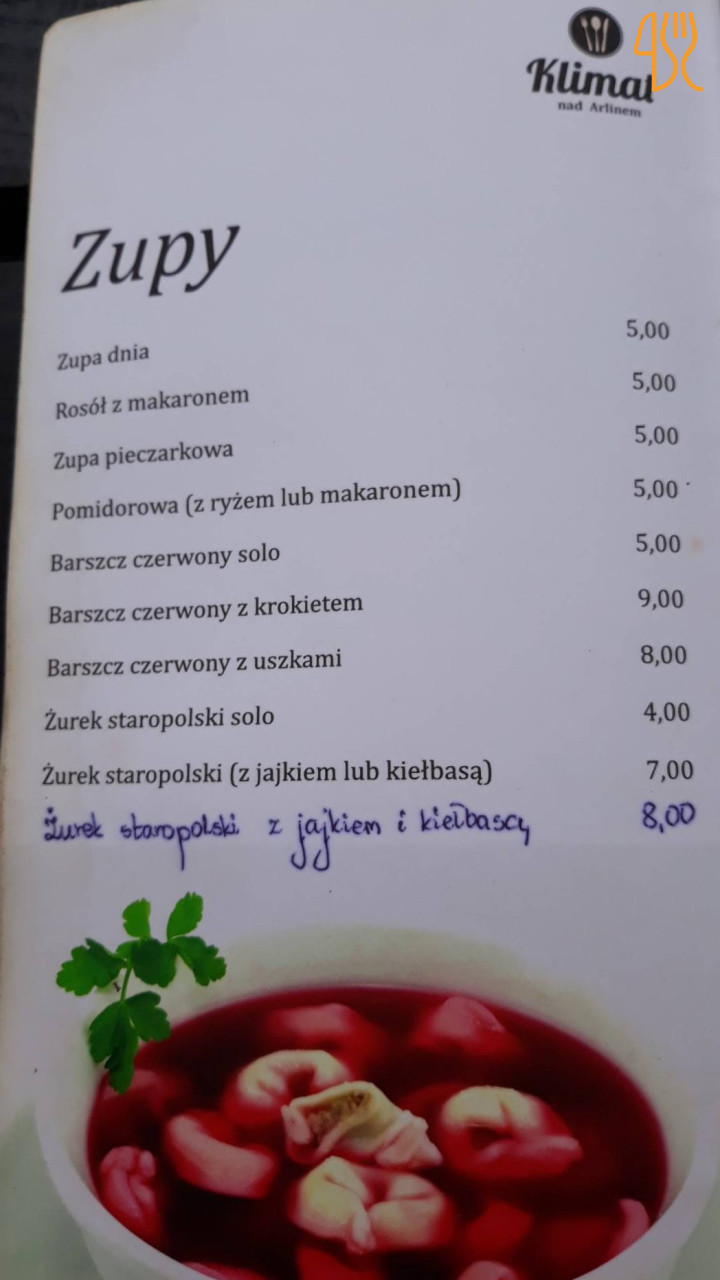 Klimat
nad Arlinem
Zupy
Zupa dnia 5,00
Rosół z makaronem 5,00
Zupa pieczarkowa 5,00
Pomidorowa (z ryżem lub makaronem) 5,00
Barszcz czerwony solo 5,00
Barszcz czerwony z krokietem 9,00
Barszcz czerwony z uszkami 8,00
Żurek staropolski solo 4,00
Żurek staropolski (z jajkiem lub kiełbasą) 7,00
Żurek staropolski z jajkiem i kiełbasą 8,00